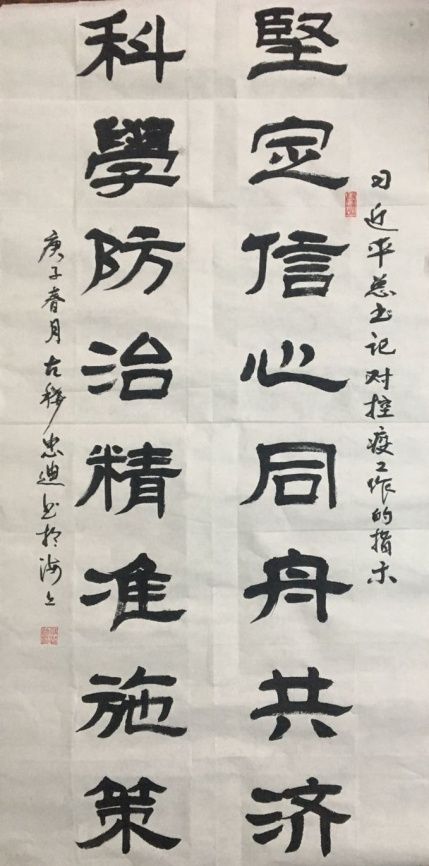 习近平总书记对控疫工作的指示
堅定信心同舟共济
科學防治精准施策
庚子春月古稀忠迪书於海上